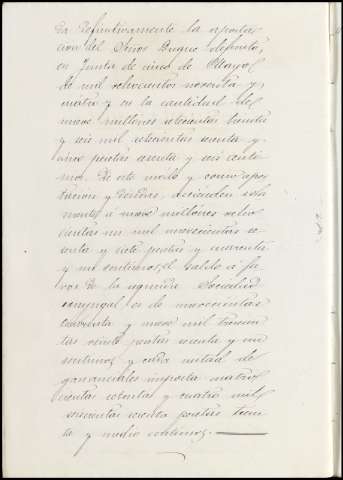 da definitivamente la aporta-
cion del Señor Duque defunto,
en Junta de cinco de Mayo
de mil ochocientos noventa y
cuatro y en la cantidad de
nueve millones setecientas treinta
y seis mil setecientas setenta y
pesetas y seis centi-
mos. De este modo y como apor-
taciones y deudas, ascienden sola
mente á nueve millones ocho
cientas un mil novecientas se-
senta y siete pesetas y cuarenta
y un centimos, el saldo á fa-
vor de la aquirida Sociedad
conyugal es de novecientas
cuarenta y nueve mil trescien
tas veinte pesetas y un
centimos y cada mitad de
gananciales importa cuatro
cientas setenta y cuatro mil
seiscientas sesenta pesetas trein
ta y medio centimos.